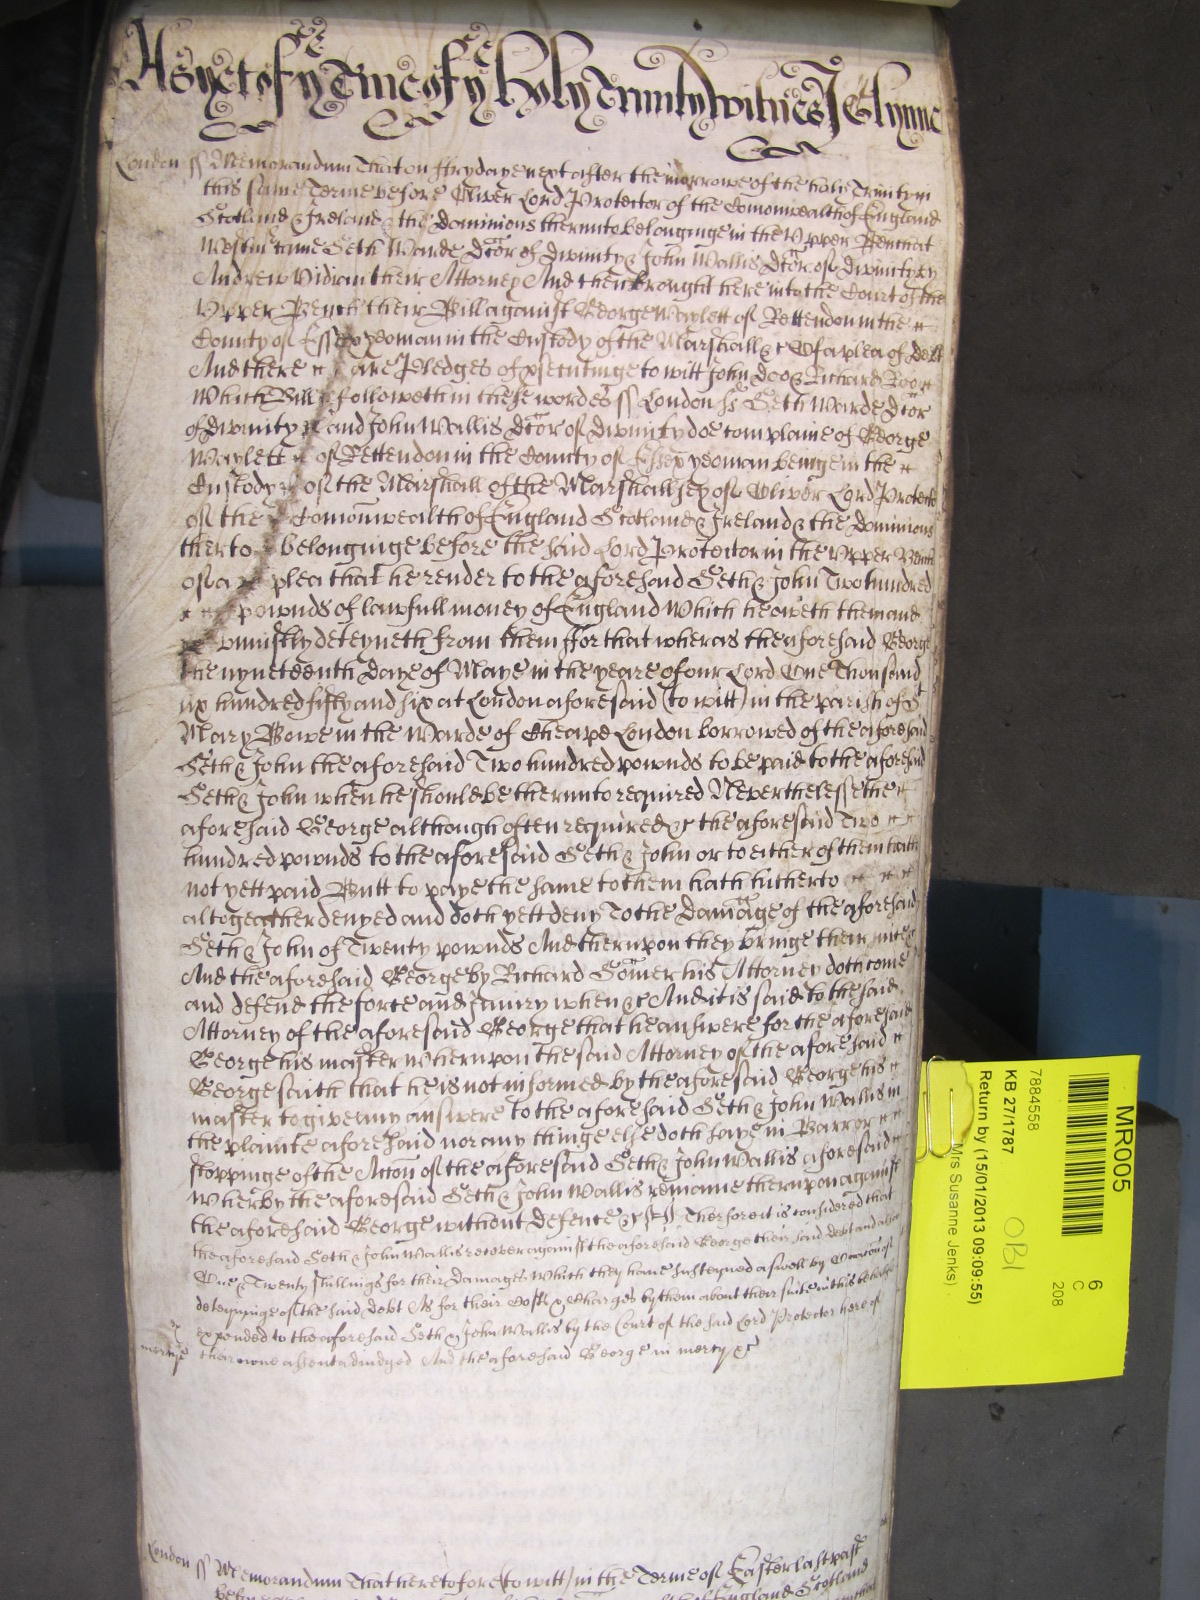 As yet of ye Terme of ye Holy Trinity witnes J Glynne
London ss Memorandum That on ffrydaye next after the morrowe of the holy Trinity in
this same Terme before Oliver Lord Protector of the Comonwealth of England
Scotland & Ireland & the dominions therunto belonginge in the Upper Bench at
Westmr came Seth Warde Dcor of divinity & John Wallis Dcor of divinity by
Andrew Vidian their Attorney And then brought here into the Court of the
Upper Bench their Bill against George Waylett of Rettendon in the
County of Essex yeoman in the Custody of the Marshall &c Of a plea of debt
And there are Pledges of prsecutinge to witt John Doo & Richard Roo
Which Bill followeth in these wordes ss London ss Seth Warde Dcor
of divinity and John Wallis Dcor of divinity doe complaine of George
Waylett of Rettendon in the County of Essex yeoman beinge in the
Custody of the Marshall of the Marshallsey of Oliver Lord Protector
of the Comonwealth of England Scotland & Ireland & the dominions
therto belonginge before the said Lord Protector in the Upper Bench
of a plea that he render to the aforesaid Seth & John Two hundred
pownds of lawfull money of England Which he oweth them and
uniustly deteyneth from them ffor that wheras the aforesaid George
the nyneteenth daye of Maye in the yeare of our Lord One Thousand
six hundred fifty and six at London aforesaid (to witt) in the parish of St
Mary Bowe in the Warde of Cheape London borrowed of the aforesaid
Seth & John the aforesaid Two hundred pownds to be paid to the aforesaid
Seth & John when he should be therunto required Neverthelesse the
aforesaid George although often required &c the aforesaid Two
hundred pownds to the aforesaid Seth & John or to either of them hath
not yett paid Butt to paye the same to them hath hitherto
altogeather denyed and doth yett deny To the damage of the aforesaid
Seth & John of Twenty pownds And therupon they bringe their suite &c
And the aforesaid George by Richard Somer his Attorney doth come
and defend the force and Iniury when &c And it is said to the said
Attorney of the aforesaid George that he answere for the aforesaid
George his master Wherupon the said Attorney of the aforesaid
George saith that he is not informed by the aforesaid George his
master to give any answere to the aforesaid Seth & John Wallis in
the plainte aforesaid nor any thinge else doth saye in Barr or
stoppinge of the Accon of the aforesaid Seth & John Wallis aforesaid
Wherby the aforesaid Seth & John Wallis remaine therupon against
the aforesaid George without defence &c Therfore it is considered that
the aforesaid Seth & John Wallis recover against the aforesaid George their said debt and alsoe
One & Twenty shillings for their damages Which they have susteyned aswell by Occasion of
deteyninge of the said debt As for their Costs & Charges by them about their suite in this behalfe
expended to the aforesaid Seth & John Wallis by the Court of the said Lord Protector here of
their owne assent adiudged And the aforesaid George in mercy &c
mercye
London ss Memorandum That heretofore (to witt) in the Terme of Easter last past
of England Scotland
MR005
6
C
208
7884558
KB 27/1787
Return by (15/01/2013 09:09:55)
Mrs Susanne Jenks)
OBI